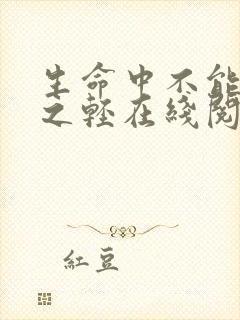 生命中不能
之輕在綫閱
紅豆